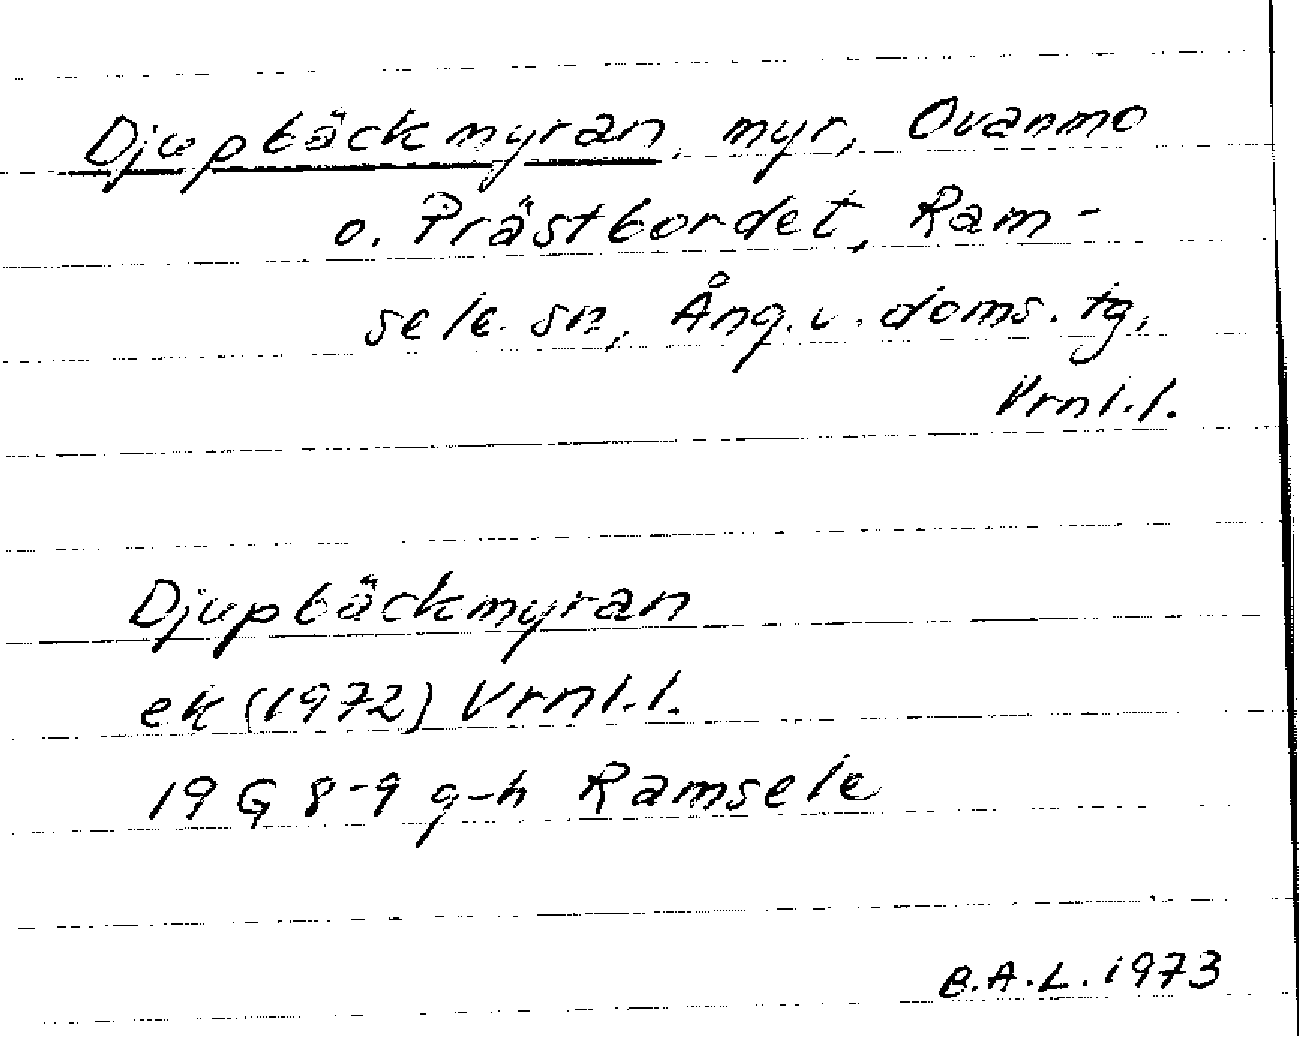 Djupbäckmyran, myr, Ovanmo
o. Prästbordet, Ram-
sele sn, Ång. v. doms. tg,
Vrnl.l.
Djupbäckmyran
ek (1972) Vrnl.l.
19 G 8-9 g-h Ramsele
B.A.L. 1973